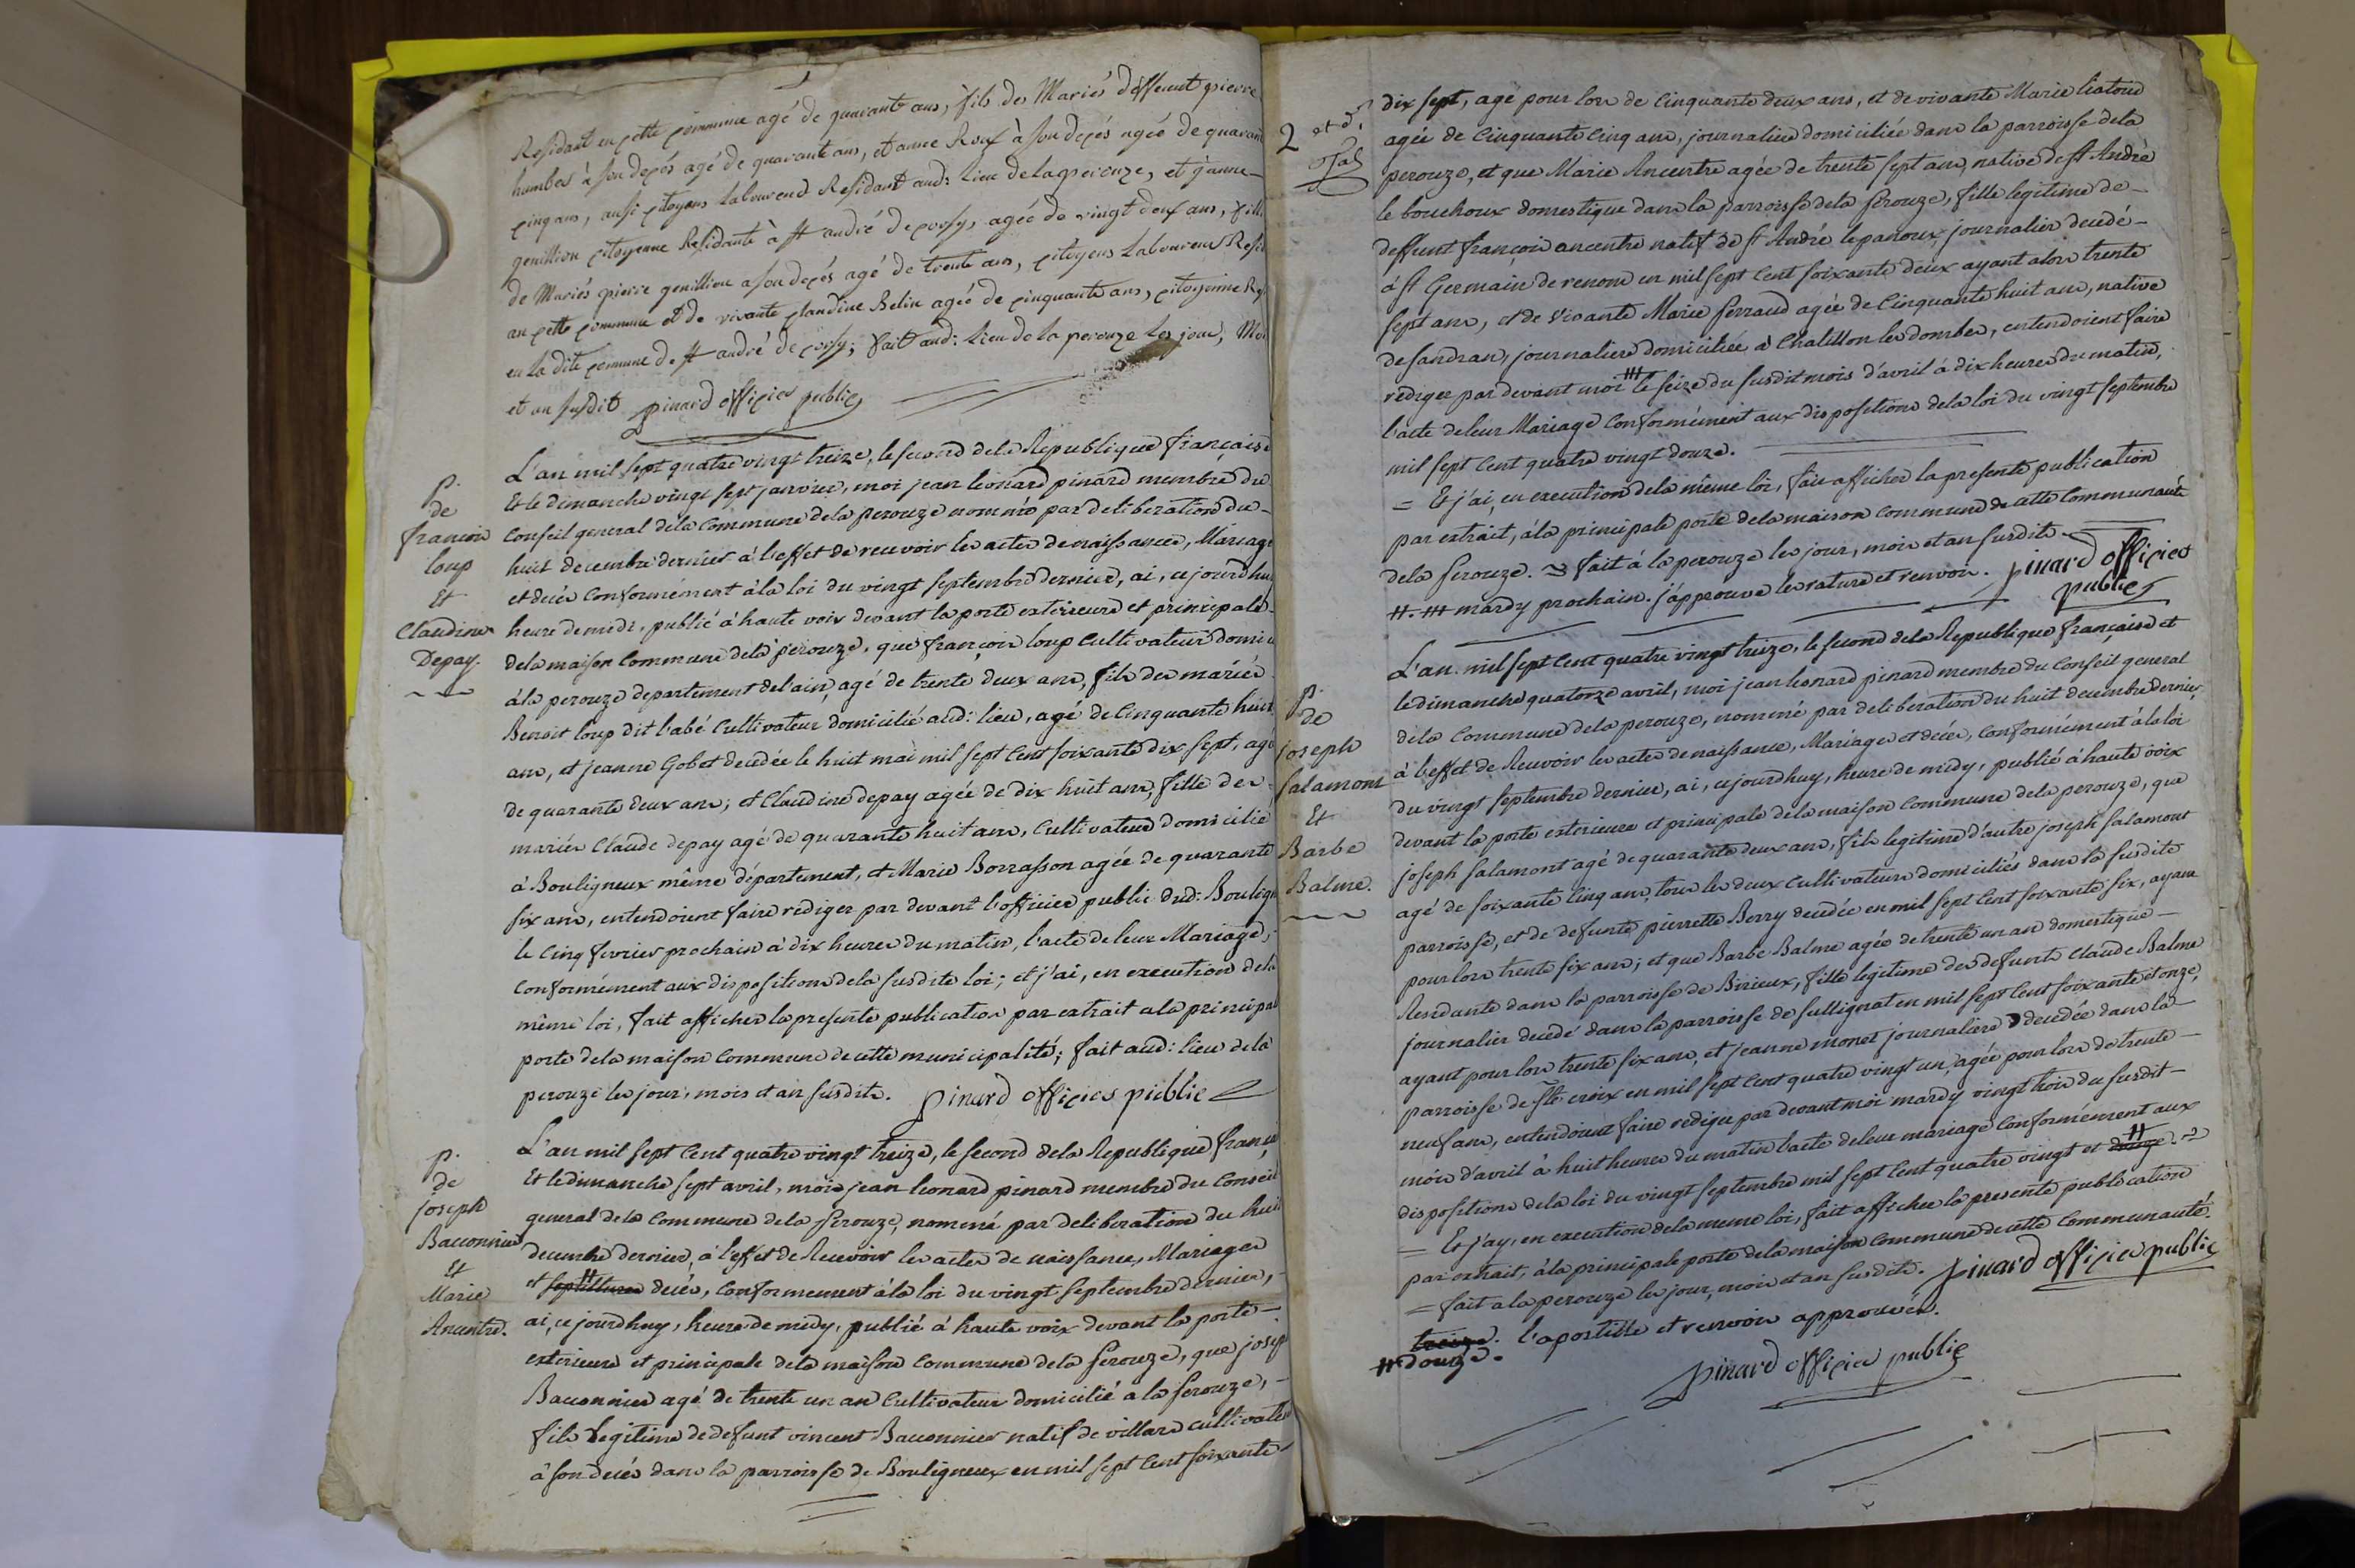 Residant en cette commune agé de quarante ans, fils de Mariés deffeunt pierre
humbes à son depés agé de quarante ans, et anne Roux à son depés agée de quarant
cinq ans, ausi citoyens Laboureurs Residant aud: lieu de Laperouze, et janne
genillion citoyenne Residante à st andré de corsy, agée de vingt deux ans, fille
de Mariés pierre genillion a son depés agé de trente ans, citoyens Laboureur Resid
an cette commune et de vivante claudine Belin agée de cinquante ans, citoyenne Re
en la dite comune de st andré de corsy; fait aud: lieu de la perouze les jour, Moi
et an susdit pinard officier public
p.
de
francois
loup
Et
Claudine
Depay.
L'an mil sept quatre vingt treize, le second de la Republique française
Et le dimanche vingt sept janvier, moi jean léonard pinard membre du
Conseil general de la Commune de la perouze nommé par deliberation du
huit decembre dernier à l'effet de recevoir les actes de naissances, Mariage
et decés conformément à la loi du vingt septembre dernier, ai, cejourd'hui
heure de midi, publié à haute voix devant la porte exterieure et principale
de la maison Commune de la perouze, que françois loup Cultivateur domici
à la perouze departement de l'ain, agé de trente deux ans, fils des mariés
Benoit loup dit l'abé Cultivateur domicilié aud: lieu, agé de Cinquante huit
ans, et jeanne Gobet decedée le huit mai mil sept Cent soixante dix sept, agé
de quarante deux ans; et Claudine depay agée de dix huit ans, fille des
mariés Claude depay agé de quarante huit ans, Cultivateur domicilié
à Bouligneux même département, et Marie Borrasson agée de quarante
six ans, entendoient faire rediger par devant l'officier public dud: Boulign
le Cinq fevrier prochain à dix heures du matin, l'acte de leur Mariage,
Conformément aux dispositions de la susdite loi; et j'ai, en execution de la
même loi, fait afficher la presente publication par extrait a la principal
porte de la maison Commune de cette municipalité; fait aud: lieu de la
perouze les jour, mois et an susdits. pinard officier public
p.
de
joseph
Baconnier
Et
Marie
Ancentre.
L'an mil sept Cent quatre vingt treize, le second de la Republique françai
Et le dimanche sept avril, moi jean leonard pinard membre du Conseil
general de la Commune de la perouze, nommé par deliberation du huit
decembre dernier, à l'effet de Recevoir les actes de naissances, Mariages
et decés, conformement à la loi du vingt septembre dernier,
ai, cejourdhuy, heure de midy, publié à haute voix devant la porte
exterieure et principale de la maison commune de la perouze, que josep
Baconnier agé de trente un an Cultivateur domicilié a la perouze,
fils legitime de defunt vincent Baconnier natif de villars cultivateu
à son decés dans la parroisse de Bouligneux en mil sept Cent soixante
2
dix sept, agé pour lors de Cinquante deux ans, et de vivante Marie liatoud
agée de Cinquante Cinq ans, journaliere domiciliée dans la parroisse de la
perouze, et que Marie Ancentre agée de trente sept ans, native de st André
le bouchoux domestique dans la parroisse de la perouze, fille legitime de
deffunt françois ancentre natif de st André lepanoux, journalier decedé
à st Germain de renom en mil sept Cent soixante deux ayant alors trente
sept ans, et de vivante Marie ferraud agée de Cinquante huit ans, native
de sandran, journaliere domiciliée à Chatillon les dombes, entendoient faire
rediger par devant moi le seize du susdit mois d'avril à dix heures du matin,
l'acte de leur Mariage Conformément aux dispositions de la loi du vingt septembre
mil sept Cent quatre vingt douze.
= Et j'ai, en execution de la même loi, fait afficher la presente publication
par extrait, à la principale porte de la maison commune de cette Communauté
de la perouze. fait à la perouze les jour, mois et an susdits. pinard officier
mardy prochain. j'approuve les rature et renvoi. public
p.
de
joseph
Salamont
Et
Barbe
Balme.
L'an mil sept Cent quatre vingt treize, le second de la Republique française et
le dimanche quatorze avril, moi jean leonard pinard membre du Conseil general
de la Commune de la perouze, nommé par deliberation du huit decembre dernier
à l'effet de Recevoir les actes de naissance, Mariages et decés, Conformément à la loi
du vingt septembre dernier, ai, cejourdhuy, heure de midy, publié à haute voix
devant la porte exterieure et principale de la maison Commune de la perouze, que
joseph Salamont agé de quarante deux ans, fils legitime d'autre joseph Salamont
agé de soixante Cinq ans, tous les deux Cultivateurs domiciliés dans la susdite
parroisse, et de defunte pierrette Berry decedée en mil sept Cent soixante six, ayant
pour lors trente six ans; et que Barbe Balme agée de trente un an domestique
Residante dans la parroisse de Birieux, fille legitime des defunts Claude Balme
journalier decedé dans la parroisse de sullignat en mil sept Cent soixante et onze,
ayant pour lors trente six ans, et jeanne monet journaliere decedée dans la
parroisse de ste croix en mil sept Cent quatre vingt un, agée pour lors de trente
neuf ans, entendoient faire rediger par devant moi mardy vingt trois du susdit
mois d'avril à huit heures du matin l'acte de leur mariage Conformément aux
dispositions de la loi du vingt septembre mil sept Cent quatre vingt et
= Et j'ay, en execution de la meme loi, fait afficher la presente publication
par extrait, à la principale porte de la maison Commune de cette Communauté.
= fait a la perouze les jour, mois et an susdits. pinard officier public
treize. l'apostille et renvoi approuvés.
douze.
pinard officier public